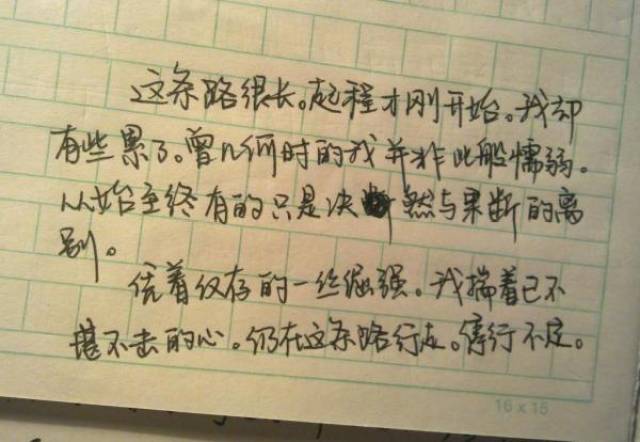 这条路很长。起程才刚开始。我却
有些累了。曾几何时的我并非此般懦弱。
从始至终有的只是决然与果断的离
别。
凭着仅存的一丝倔强。我揣着已不
堪不去的心。仍在这条路行走。停行不定。
16×15